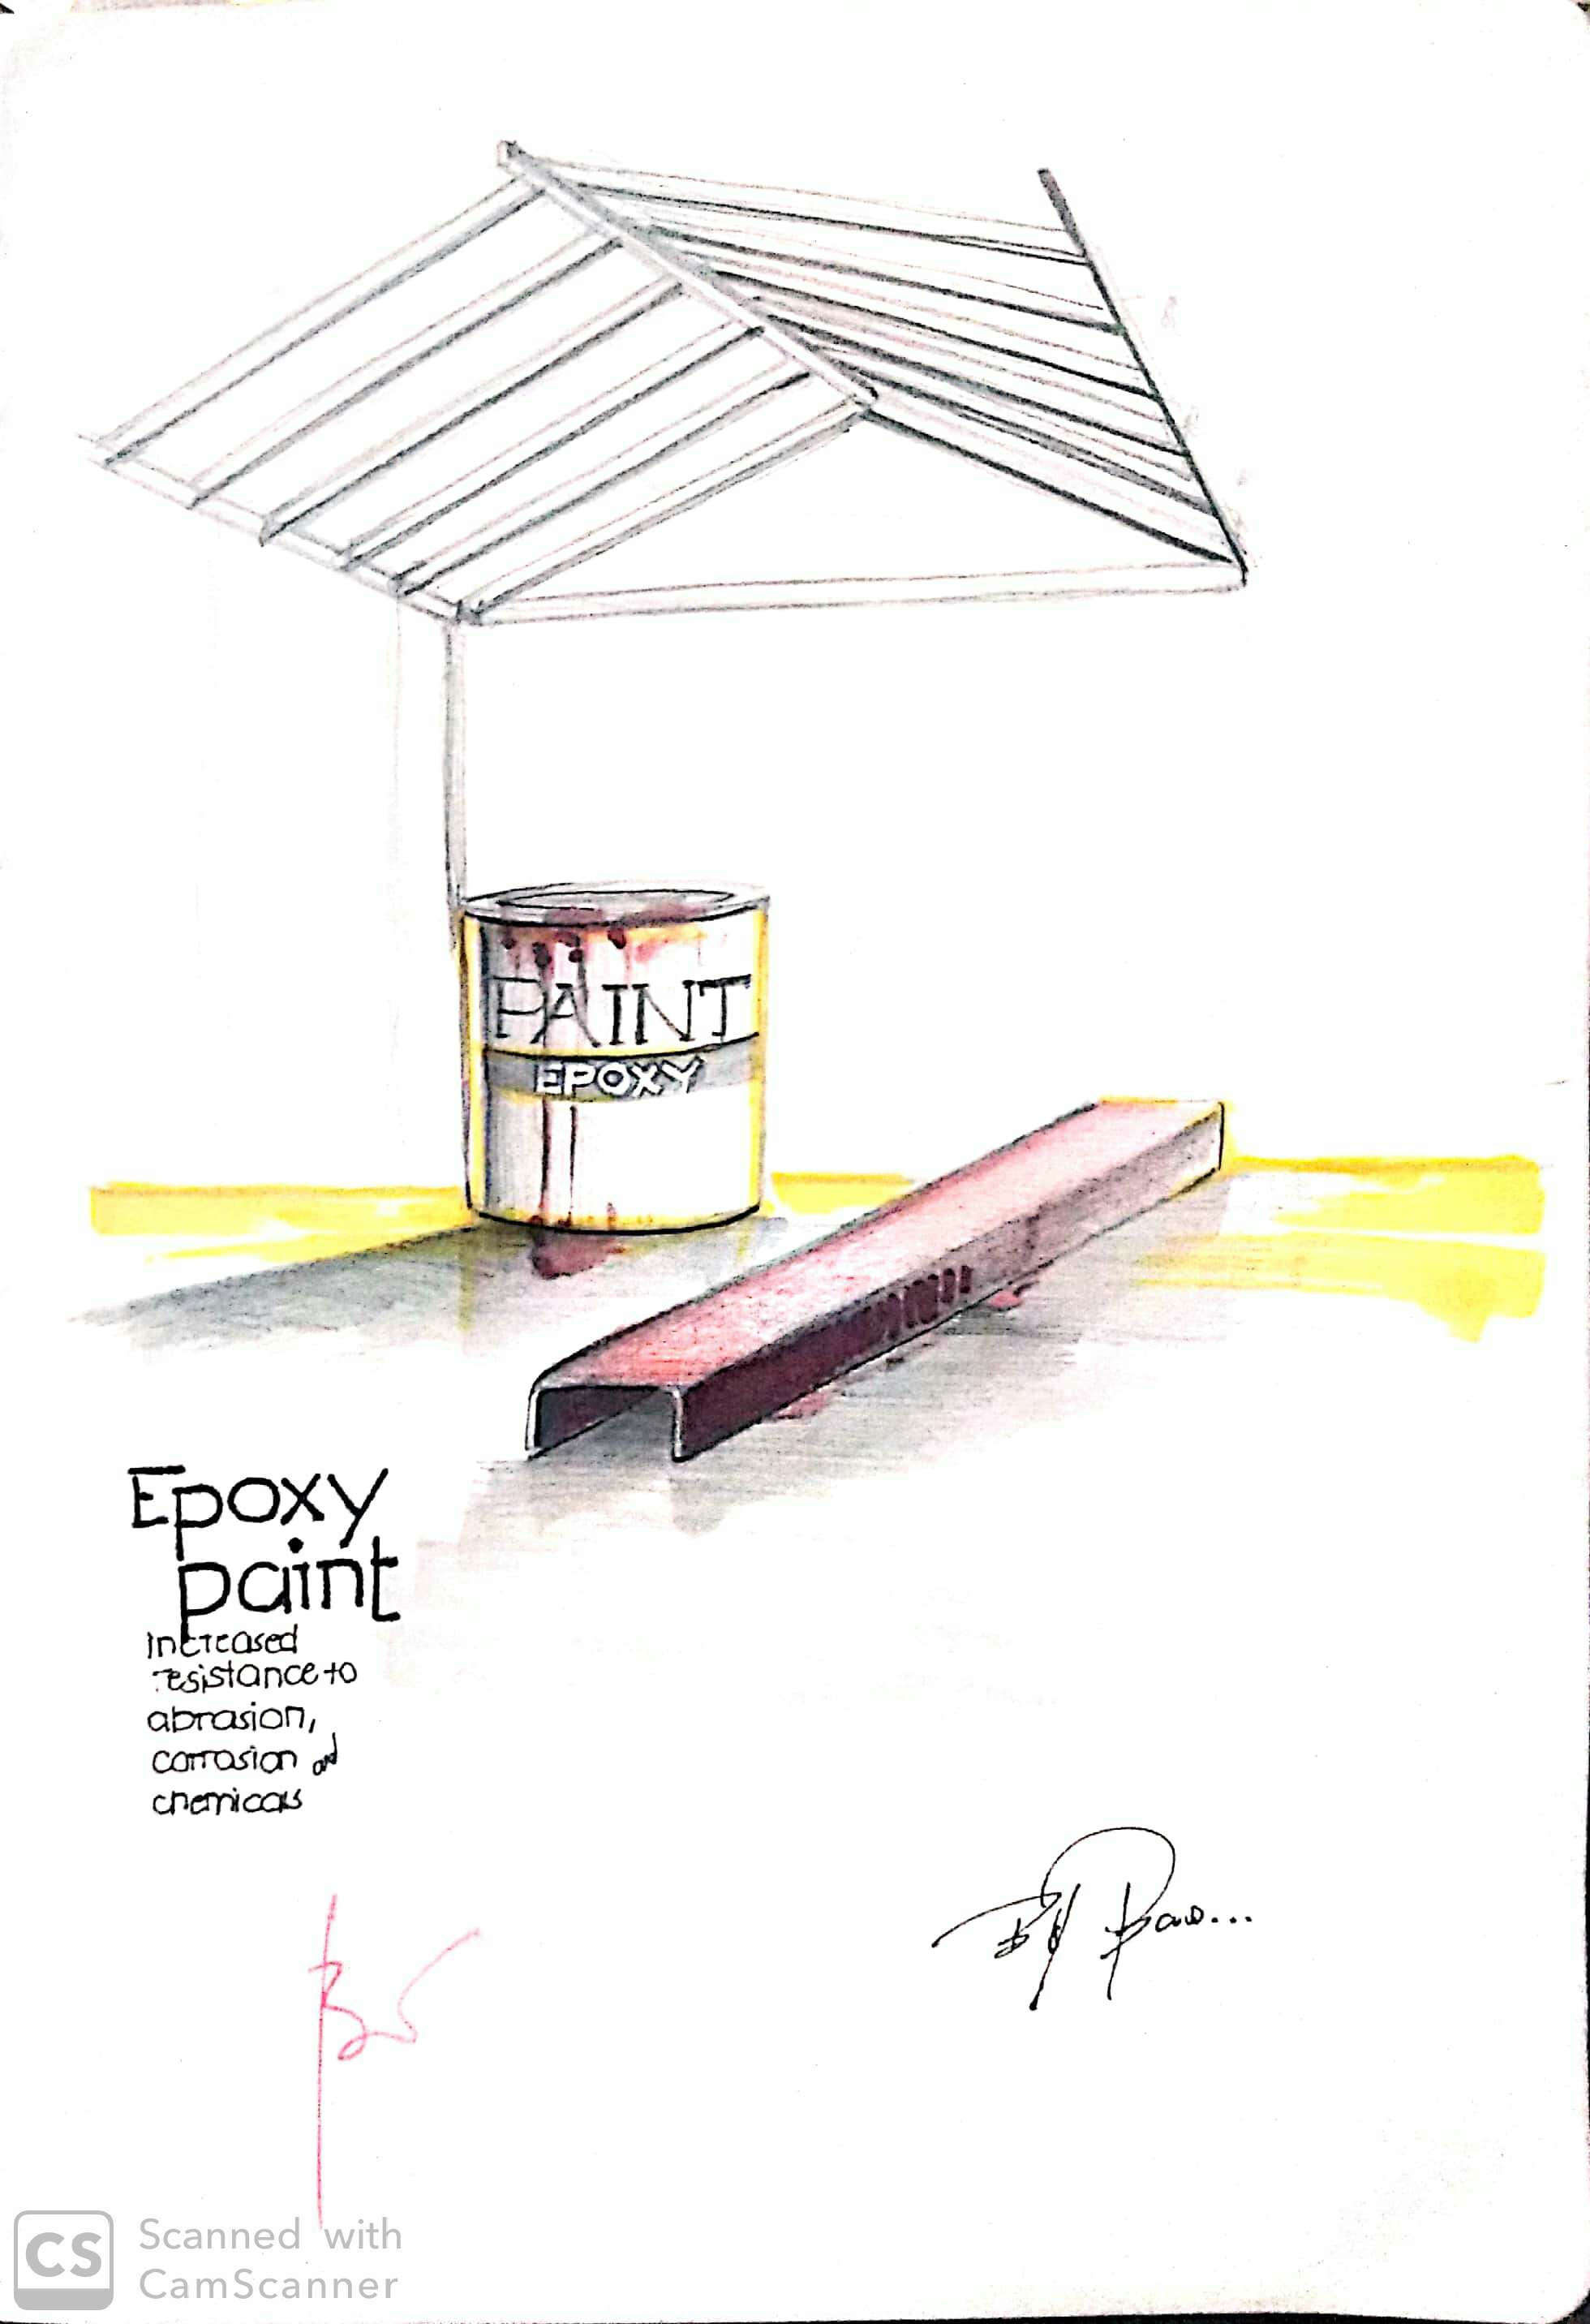 PAINT
EPOXY
Epoxy
paint
increased
resistance to
abrasion,
corrosion and
chemicals
CS
Scanned with
CamScanner